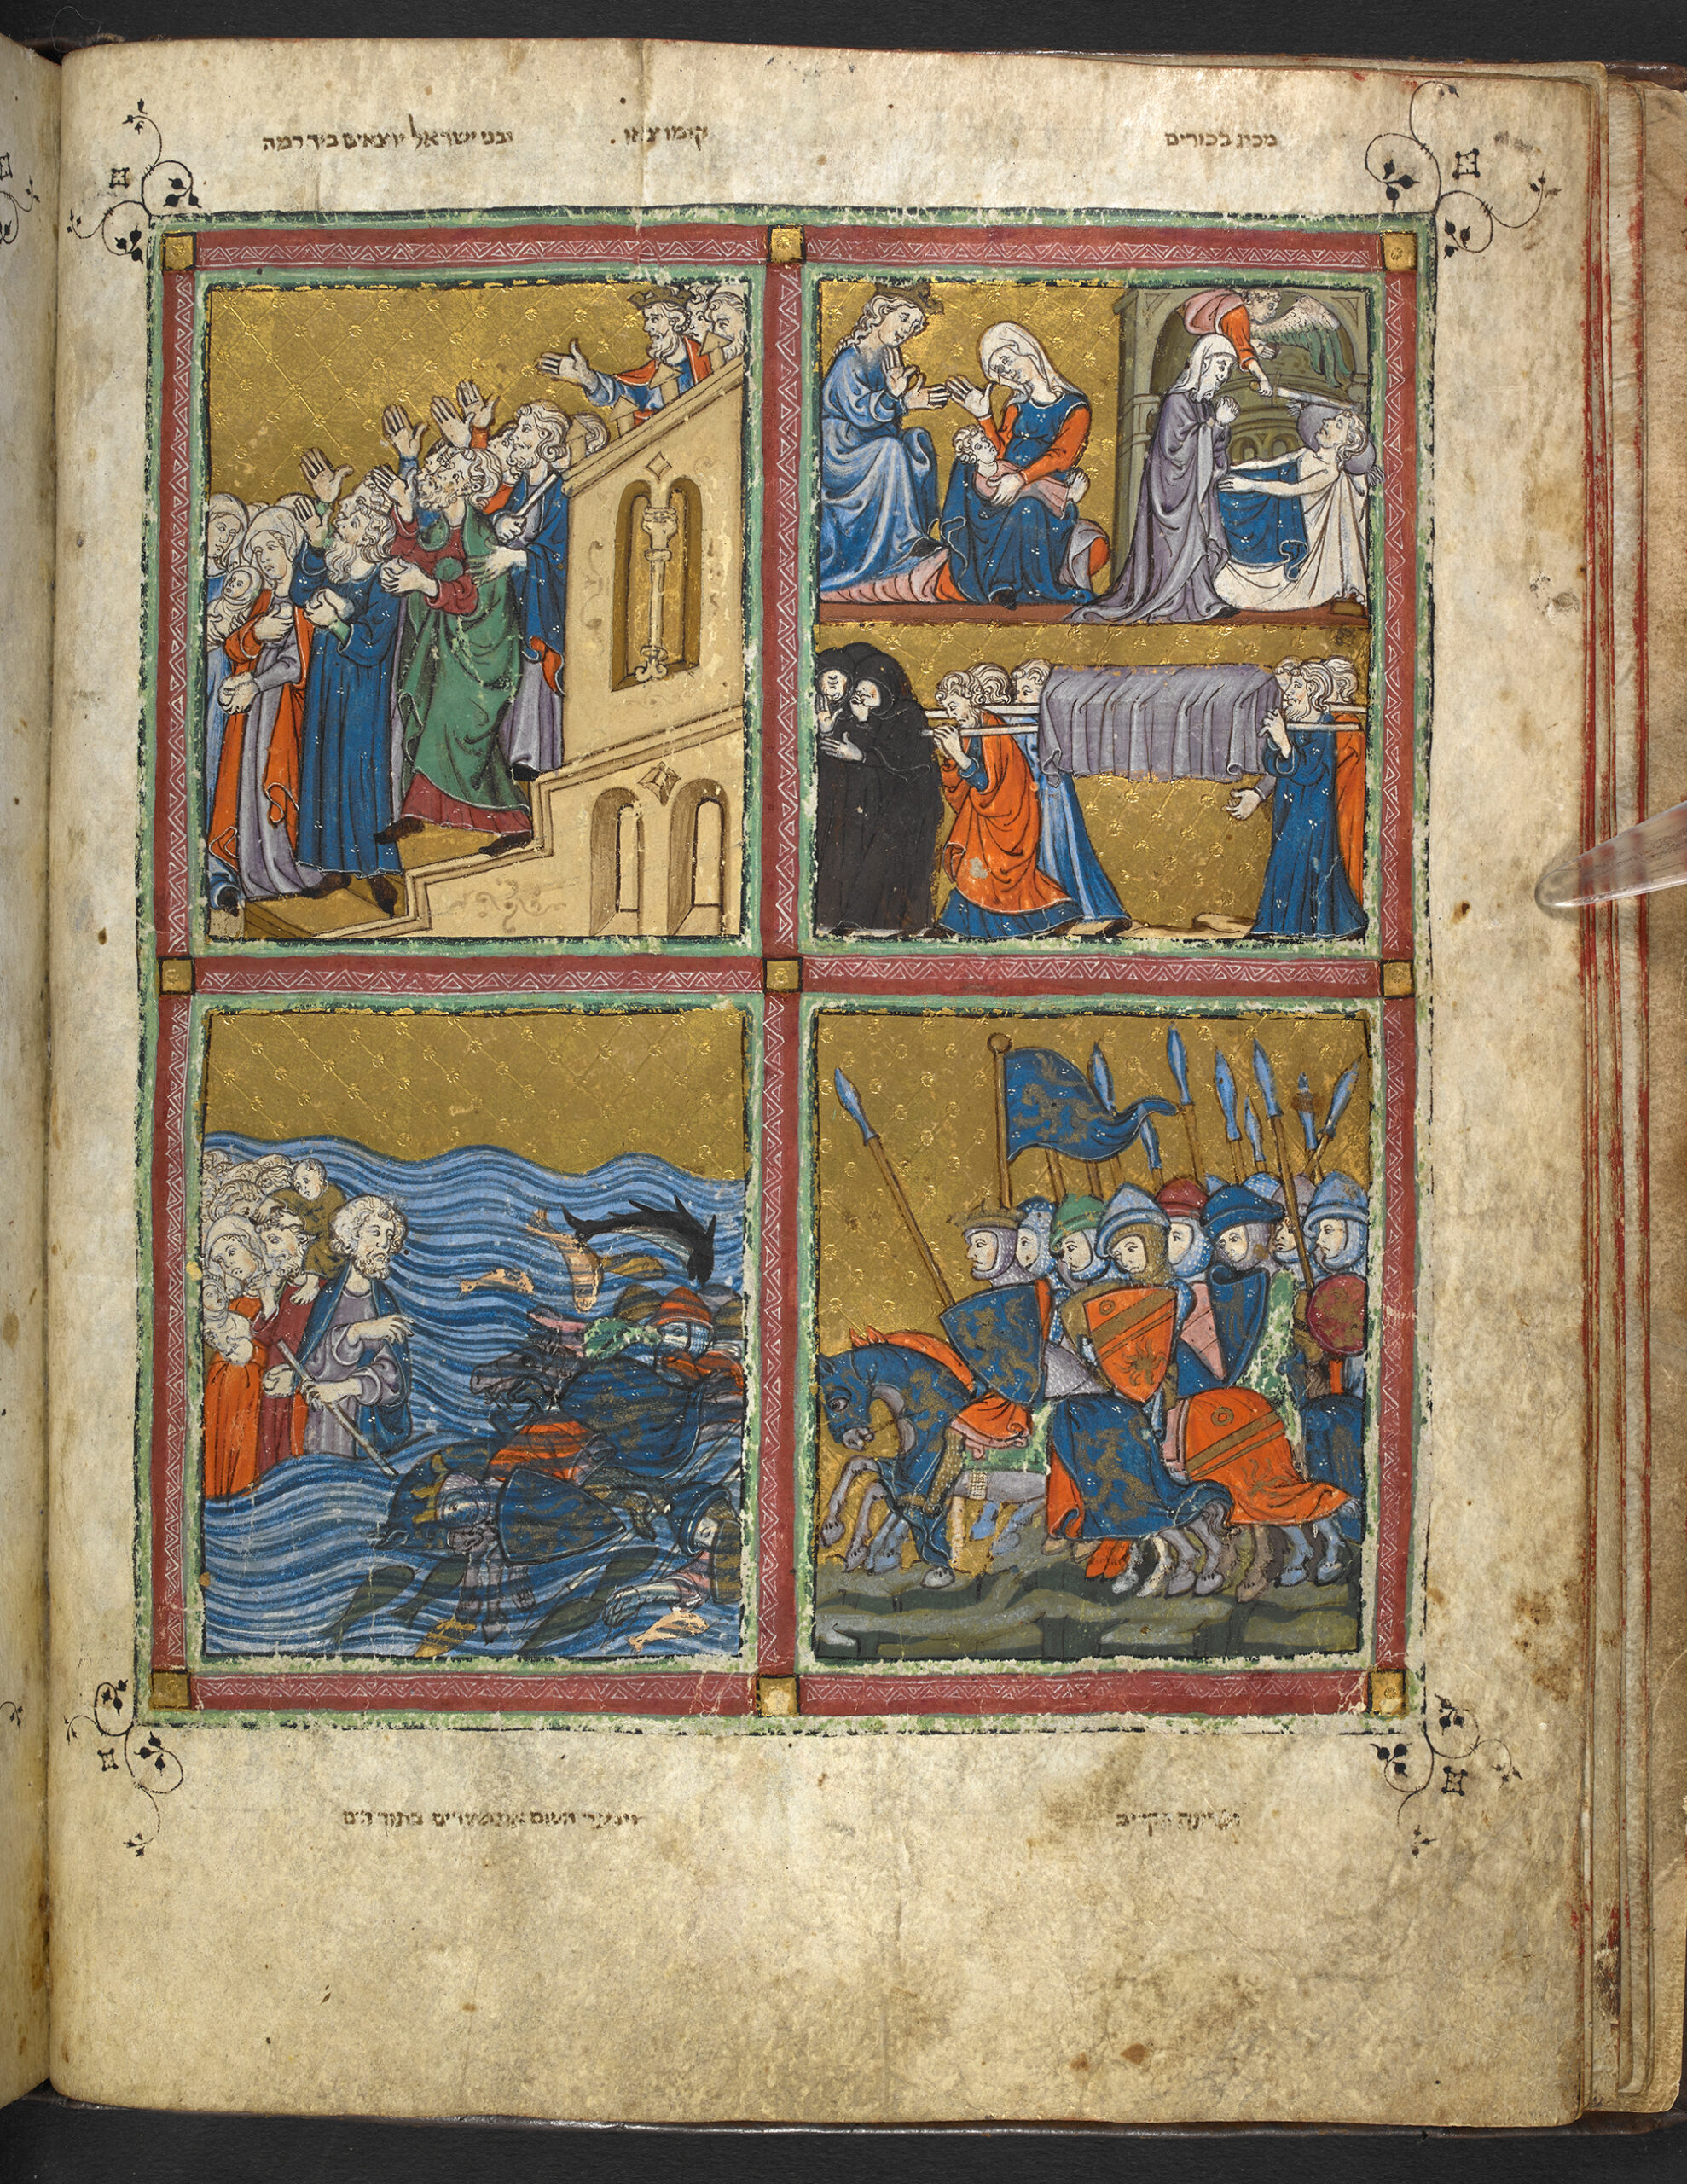 מכת בכורים
קומו צאו . ובני ישראל יוצאים ביד רמה
ופרעה הקריב
וינער השם את מצרים בתוך הים